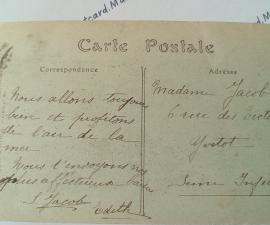 Carte Postale
Correspondance
Adresse
Nous allons toujours
bien et profitons
de l'air de la
mer
Nous t'envoyons nos
plus affectueux
S. Jacob
Edith
Madame Jacob
6 rue des
Yvetot
Seine